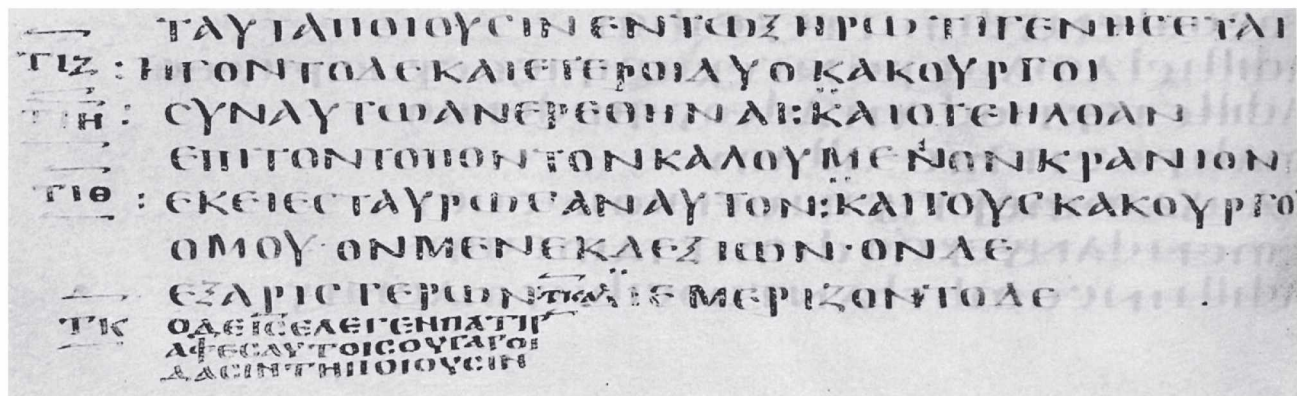 ΤΑΥΤΑΠΟΙΟΥCΙΝ ΕΝΤΩΞΗΡΩ ΤΙΓΕΝΗCΕΤΑΙ
ΤΙΖ : ΗΓΟΝΤΟΔΕΚΑΙΕΤΕΡΟΙΔΥΟΚΑΚΟΥΡΓΟΙ
ΤΙΗ : CΥΝΑΥΤΩΑΝΕΡΕΘΗΝΑΙ:ΚΑΙΟΤΕΗΛΘΑΝ
ΕΠΙΤΟΝΤΟΠΟΝ ΤΟΝΚΑΛΟΥΜΕΝΩΝΚΡΑΝΙΟΝ
ΤΙΘ : ΕΚΕΙΕCΤΑΥΡΩCΑΝΑΥΤΟΝ:ΚΑΙΤΟΥCΚΑΚΟΥΡΓΟ
ΟΜΟΥ·ΟΝΜΕΝΕΚΔΕΞΙΩΝ·ΟΝΔΕ
ΕΞΑΡΙCΤΕΡΩΝ ΤΚΑ ΔΙΕΜΕΡΙΖΟΝΤΟΔΕ
ΤΚ ΟΔΕΙCΕΛΕΓΕΝΠΑΤΗΡ
ΑΦΕCΑΥΤΟΙCΟΥΓΑΡΟΙ
ΔΑCΙΝΤΗΠΟΙΟΥCΙΝ